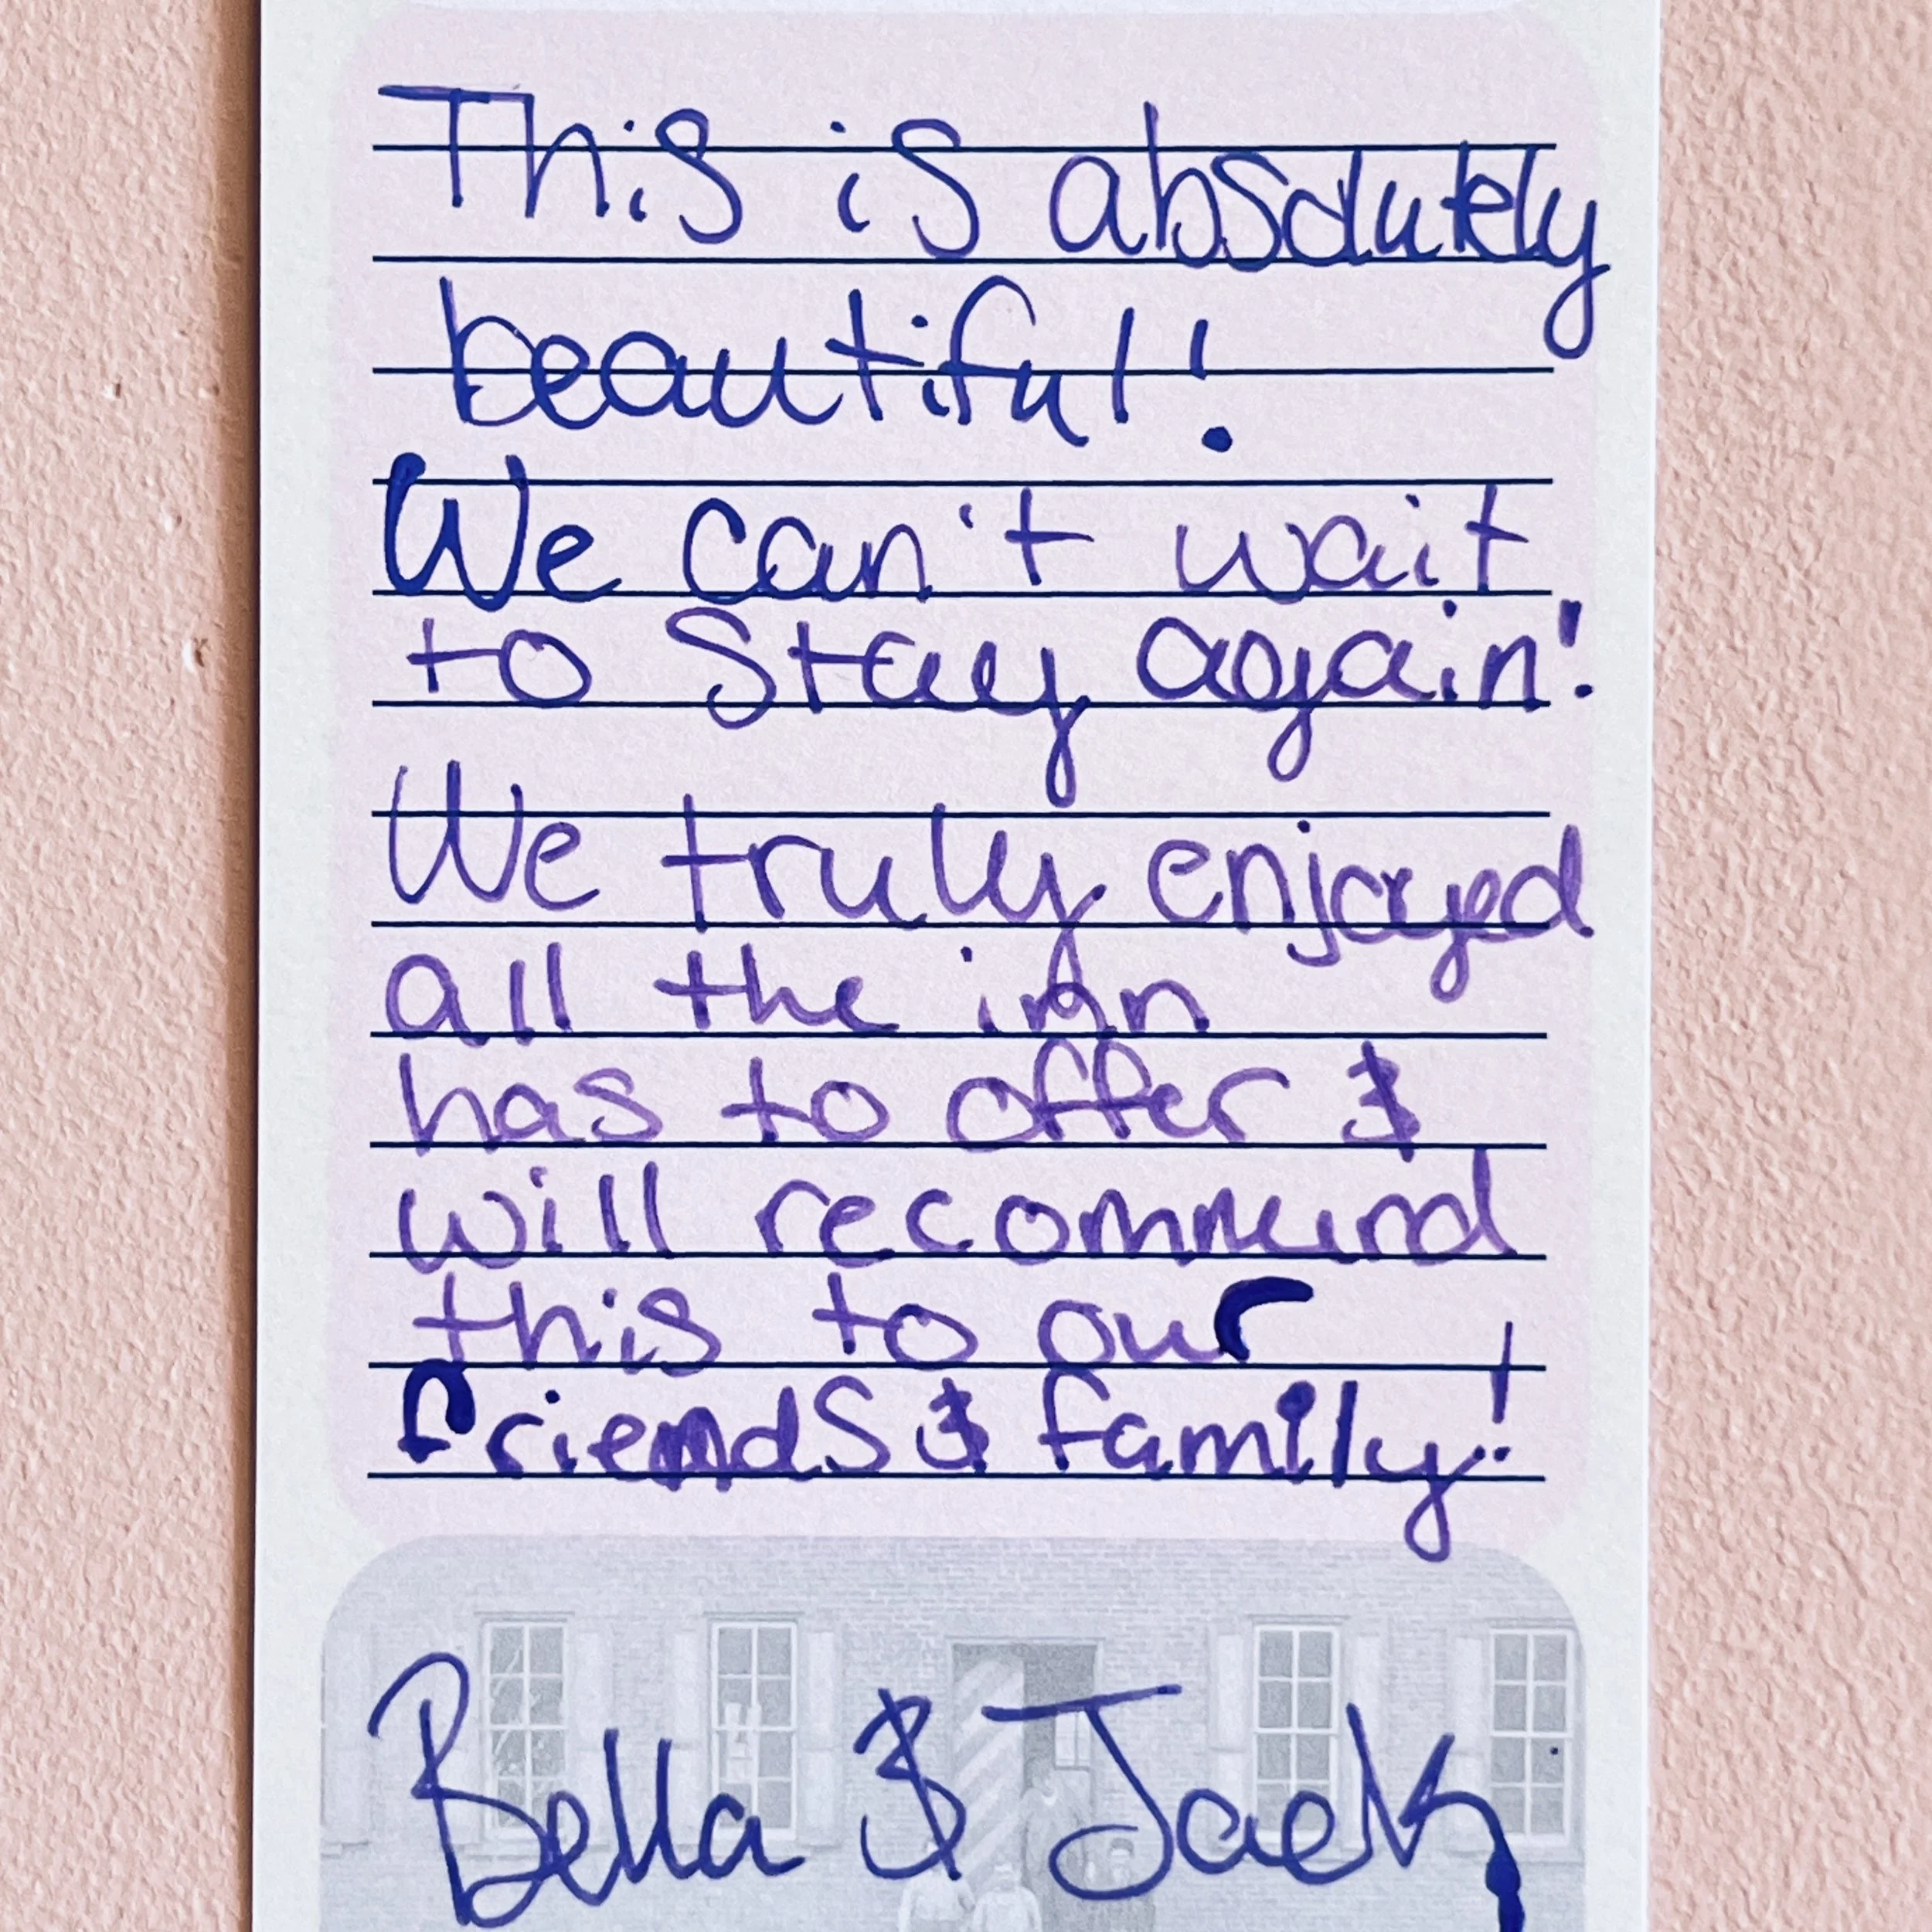 This is absolutely
beautiful!
We can't wait
to Stay again!
We truly enjoyed
all the inn
has to offer &
will recommend
this to our
friends & family!
Bella & Jack